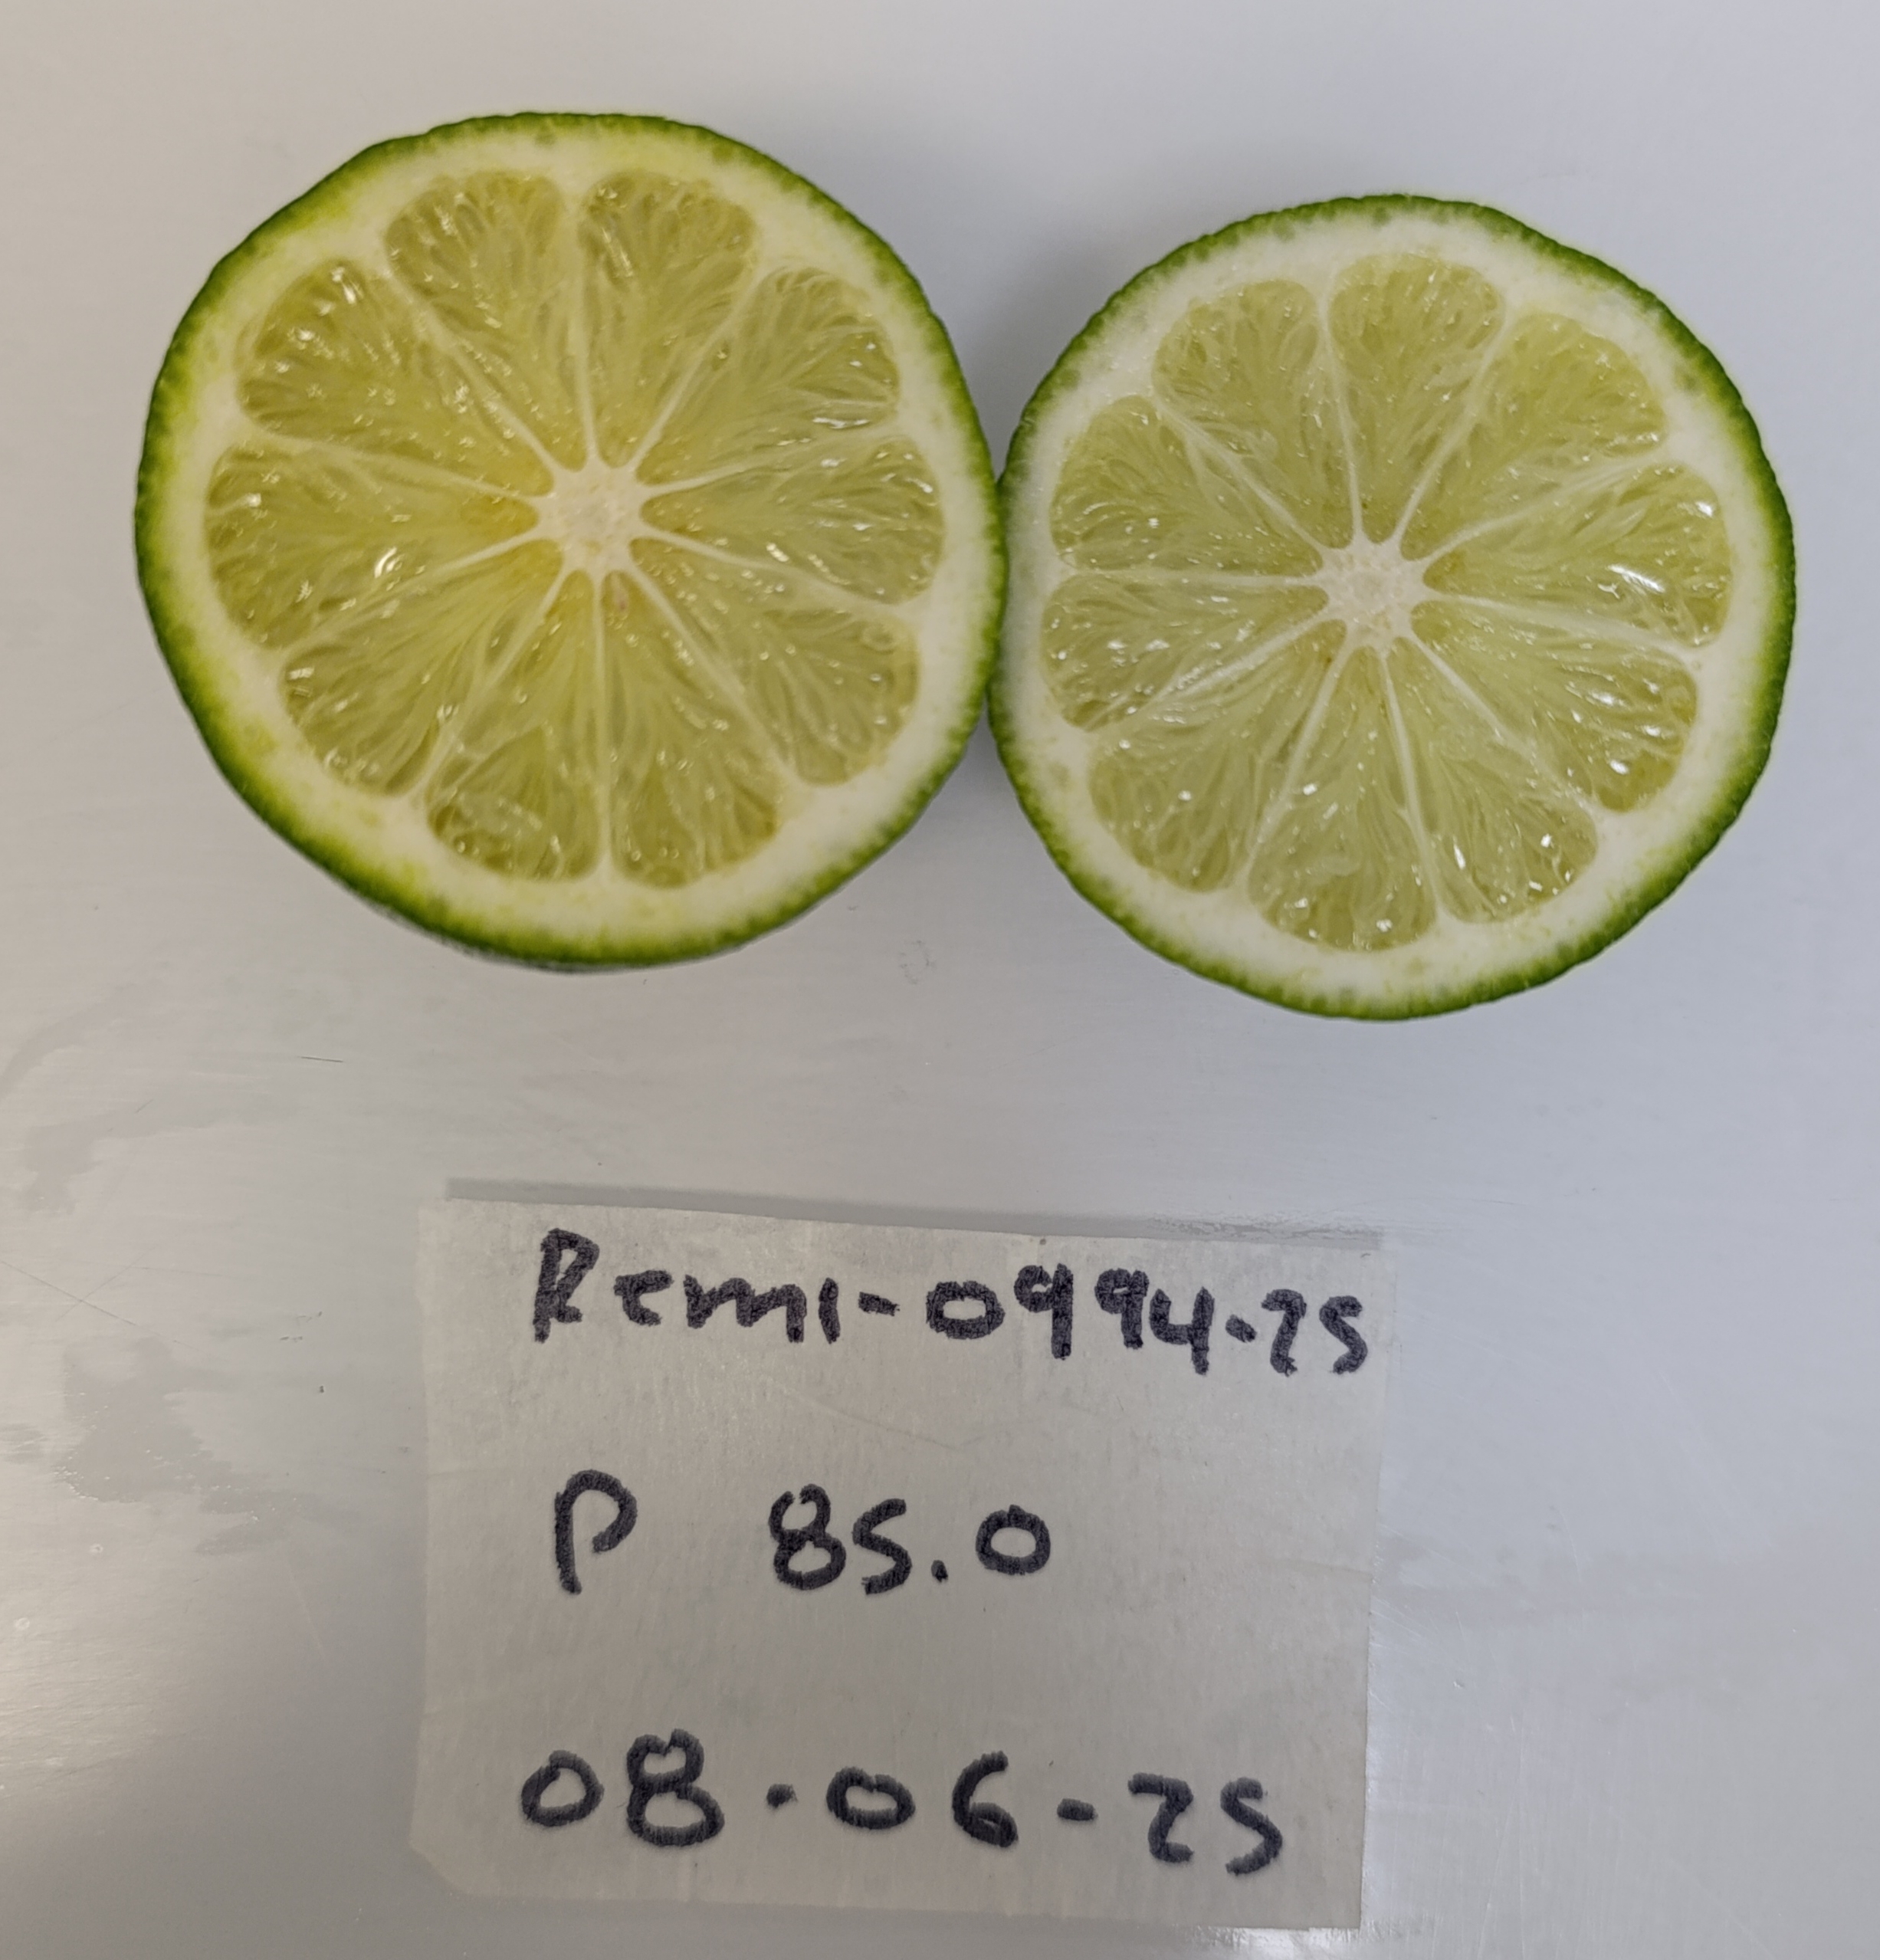 Remi-0994-25
P 85.0
08-06-25